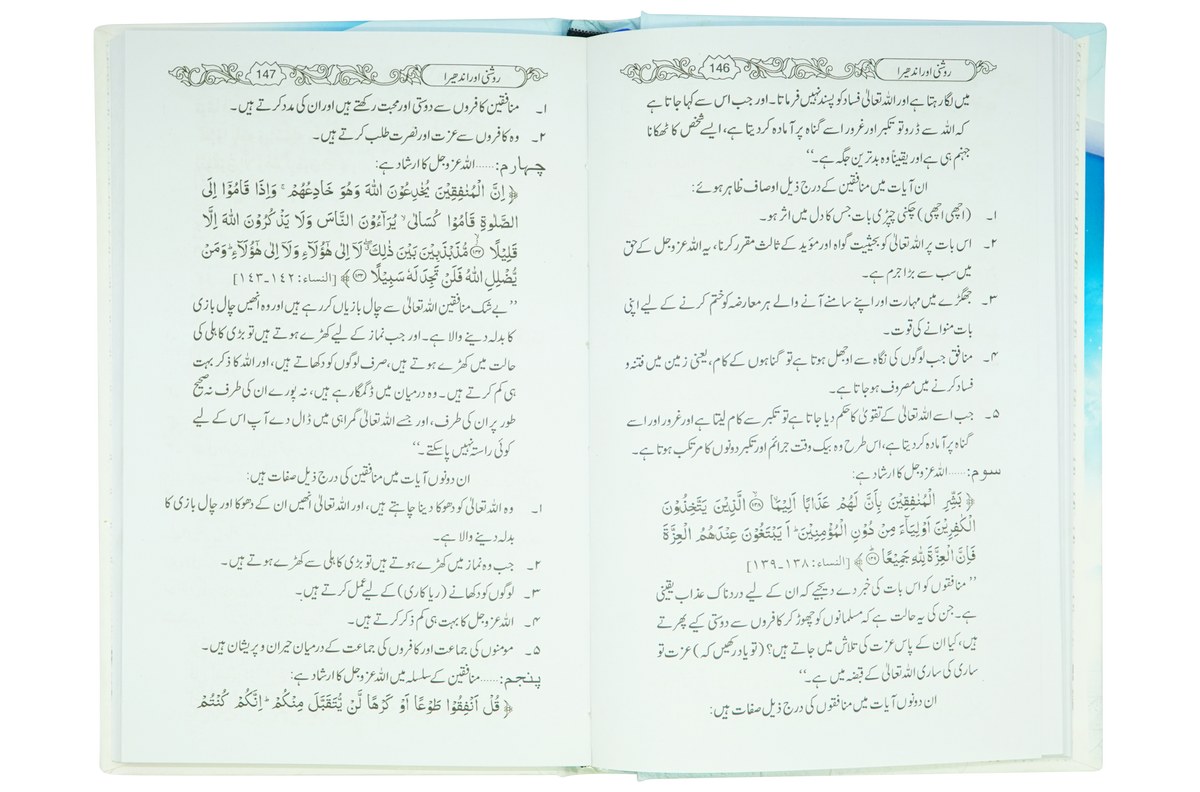 146
روشنی اور اندھیرا
میں لگا رہتا ہے اور اللہ تعالیٰ فساد کو پسند نہیں فرماتا۔ اور جب اس سے کہا جاتا ہے
کہ اللہ سے ڈرو تو تکبر اور غرور اسے گناہ پر آمادہ کر دیتا ہے، ایسے شخص کا ٹھکانا
جہنم ہی ہے اور یقیناً وہ بدترین جگہ ہے۔‘‘
ان آیات میں منافقین کے درج ذیل اوصاف ظاہر ہوئے:
۱۔ (اچھی اچھی) چکنی چپڑی بات جس کا دل میں اثر ہو۔
۲۔ اس بات پر اللہ تعالیٰ کو بحیثیت گواہ اور مؤید کے ثالث مقرر کرنا، یہ اللہ عزوجل کے حق
میں سب سے بڑا جرم ہے۔
۳۔ جھگڑے میں مہارت اور اپنے سامنے آنے والے ہر معارضہ کو ختم کرنے کے لیے اپنی
بات منوانے کی قوت۔
۴۔ منافق جب لوگوں کی نگاہ سے اوجھل ہوتا ہے تو گناہوں کے کام، یعنی زمین میں فتنہ و
فساد کرنے میں مصروف ہو جاتا ہے۔
۵۔ جب اسے اللہ تعالیٰ کے تقویٰ کا حکم دیا جاتا ہے تو تکبر سے کام لیتا ہے اور غرور اور اسے
گناہ پر آمادہ کر دیتا ہے، اس طرح وہ بیک وقت جرائم اور تکبر دونوں کا مرتکب ہوتا ہے۔
سوم:...... اللہ عزوجل کا ارشاد ہے:
﴿ بَشِّرِ الْمُنٰفِقِيْنَ بِاَنَّ لَهُمْ عَذَابًا اَلِيْمًا ۝۱۳۸ الَّذِيْنَ يَتَّخِذُوْنَ
الْكٰفِرِيْنَ اَوْلِيَآءَ مِنْ دُوْنِ الْمُؤْمِنِيْنَ ؕ اَيَبْتَغُوْنَ عِنْدَهُمُ الْعِزَّةَ
فَاِنَّ الْعِزَّةَ لِلّٰهِ جَمِيْعًا ۝۱۳۹ ﴾ [النساء: ۱۳۸۔۱۳۹]
’’منافقوں کو اس بات کی خبر دے دیجیے کہ ان کے لیے دردناک عذاب یقینی
ہے۔ جن کی یہ حالت ہے کہ مسلمانوں کو چھوڑ کر کافروں سے دوستی کیے پھرتے
ہیں، کیا ان کے پاس عزت کی تلاش میں جاتے ہیں؟ (تو یاد رکھیں کہ) عزت تو
ساری کی ساری اللہ تعالیٰ کے قبضہ میں ہے۔‘‘
ان دونوں آیات میں منافقوں کی درج ذیل صفات ہیں:
147
روشنی اور اندھیرا
۱۔ منافقین کافروں سے دوستی اور محبت رکھتے ہیں اور ان کی مدد کرتے ہیں۔
۲۔ وہ کافروں سے عزت اور نصرت طلب کرتے ہیں۔
چہارم:...... اللہ عزوجل کا ارشاد ہے:
﴿ اِنَّ الْمُنٰفِقِيْنَ يُخٰدِعُوْنَ اللّٰهَ وَهُوَ خَادِعُهُمْ ۚ وَاِذَا قَامُوْٓا اِلَى
الصَّلٰوةِ قَامُوْا كُسَالٰى ۙ يُرَآءُوْنَ النَّاسَ وَلَا يَذْكُرُوْنَ اللّٰهَ اِلَّا
قَلِيْلًا ۝۱۴۲ مُّذَبْذَبِيْنَ بَيْنَ ذٰلِكَ ۖ لَآ اِلٰى هٰٓؤُلَآءِ وَلَآ اِلٰى هٰٓؤُلَآءِ ؕ وَمَنْ
يُّضْلِلِ اللّٰهُ فَلَنْ تَجِدَ لَهٗ سَبِيْلًا ۝۱۴۳ ﴾ [النساء: ۱۴۲۔۱۴۳]
’’بے شک منافقین اللہ تعالیٰ سے چال بازیاں کر رہے ہیں اور وہ انھیں چال بازی
کا بدلہ دینے والا ہے۔ اور جب نماز کے لیے کھڑے ہوتے ہیں تو بڑی کاہلی کی
حالت میں کھڑے ہوتے ہیں، صرف لوگوں کو دکھاتے ہیں، اور اللہ کا ذکر بہت
ہی کم کرتے ہیں۔ وہ درمیان میں ڈگمگا رہے ہیں، نہ پورے ان کی طرف نہ صحیح
طور پر ان کی طرف، اور جسے اللہ تعالیٰ گمراہی میں ڈال دے آپ اس کے لیے
کوئی راستہ نہیں پا سکتے۔‘‘
ان دونوں آیات میں منافقین کی درج ذیل صفات ہیں:
۱۔ وہ اللہ تعالیٰ کو دھوکا دینا چاہتے ہیں، اور اللہ تعالیٰ انھیں ان کے دھوکا اور چال بازی کا
بدلہ دینے والا ہے۔
۲۔ جب وہ نماز میں کھڑے ہوتے ہیں تو بڑی کاہلی سے کھڑے ہوتے ہیں۔
۳۔ لوگوں کو دکھانے (ریاکاری) کے لیے عمل کرتے ہیں۔
۴۔ اللہ عزوجل کا بہت ہی کم ذکر کرتے ہیں۔
۵۔ مومنوں کی جماعت اور کافروں کی جماعت کے درمیان حیران و پریشان ہیں۔
پنجم:...... منافقین کے سلسلہ میں اللہ عزوجل کا ارشاد ہے:
﴿ قُلْ اَنْفِقُوْا طَوْعًا اَوْ كَرْهًا لَّنْ يُّتَقَبَّلَ مِنْكُمْ ؕ اِنَّكُمْ كُنْتُمْ